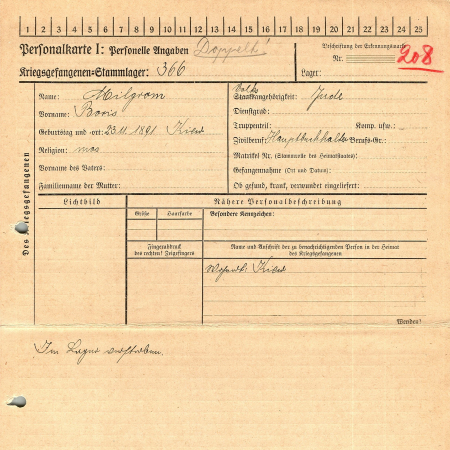 1 2 3 4 5 6 7 8 9 10 11 12 13 14 15 16 17 18 19 20 21 22 23 24 25
Personalkarte I: Personelle Angaben Doppelt!
Kriegsgefangenen-Stammlager: 366
Beschriftung der Erkennungsmarke
Nr. 208
Lager:
Des Kriegsgefangenen
Name: Milgrom
Vorname: Boris
Geburtstag und -ort: 23.11.1891 Kiew
Religion: mos
Vorname des Vaters:
Familienname der Mutter:
Volks
Staatsangehörigkeit: Jude
Dienstgrad:
Truppenteil: Komp. usw.:
Zivilberuf: Hauptbuchhalter Berufs-Gr.:
Matrikel Nr. (Stammrolle des Heimatstaates):
Gefangennahme (Ort und Datum):
Ob gesund, krank, verwundet eingeliefert:
Lichtbild
Nähere Personalbeschreibung
Größe Haarfarbe
Besondere Kennzeichen:
Fingerabdruck
des rechten! Zeigefingers
Name und Anschrift der zu benachrichtigenden Person in der Heimat
des Kriegsgefangenen
Kiew
Wenden!
Im Lager verstorben.